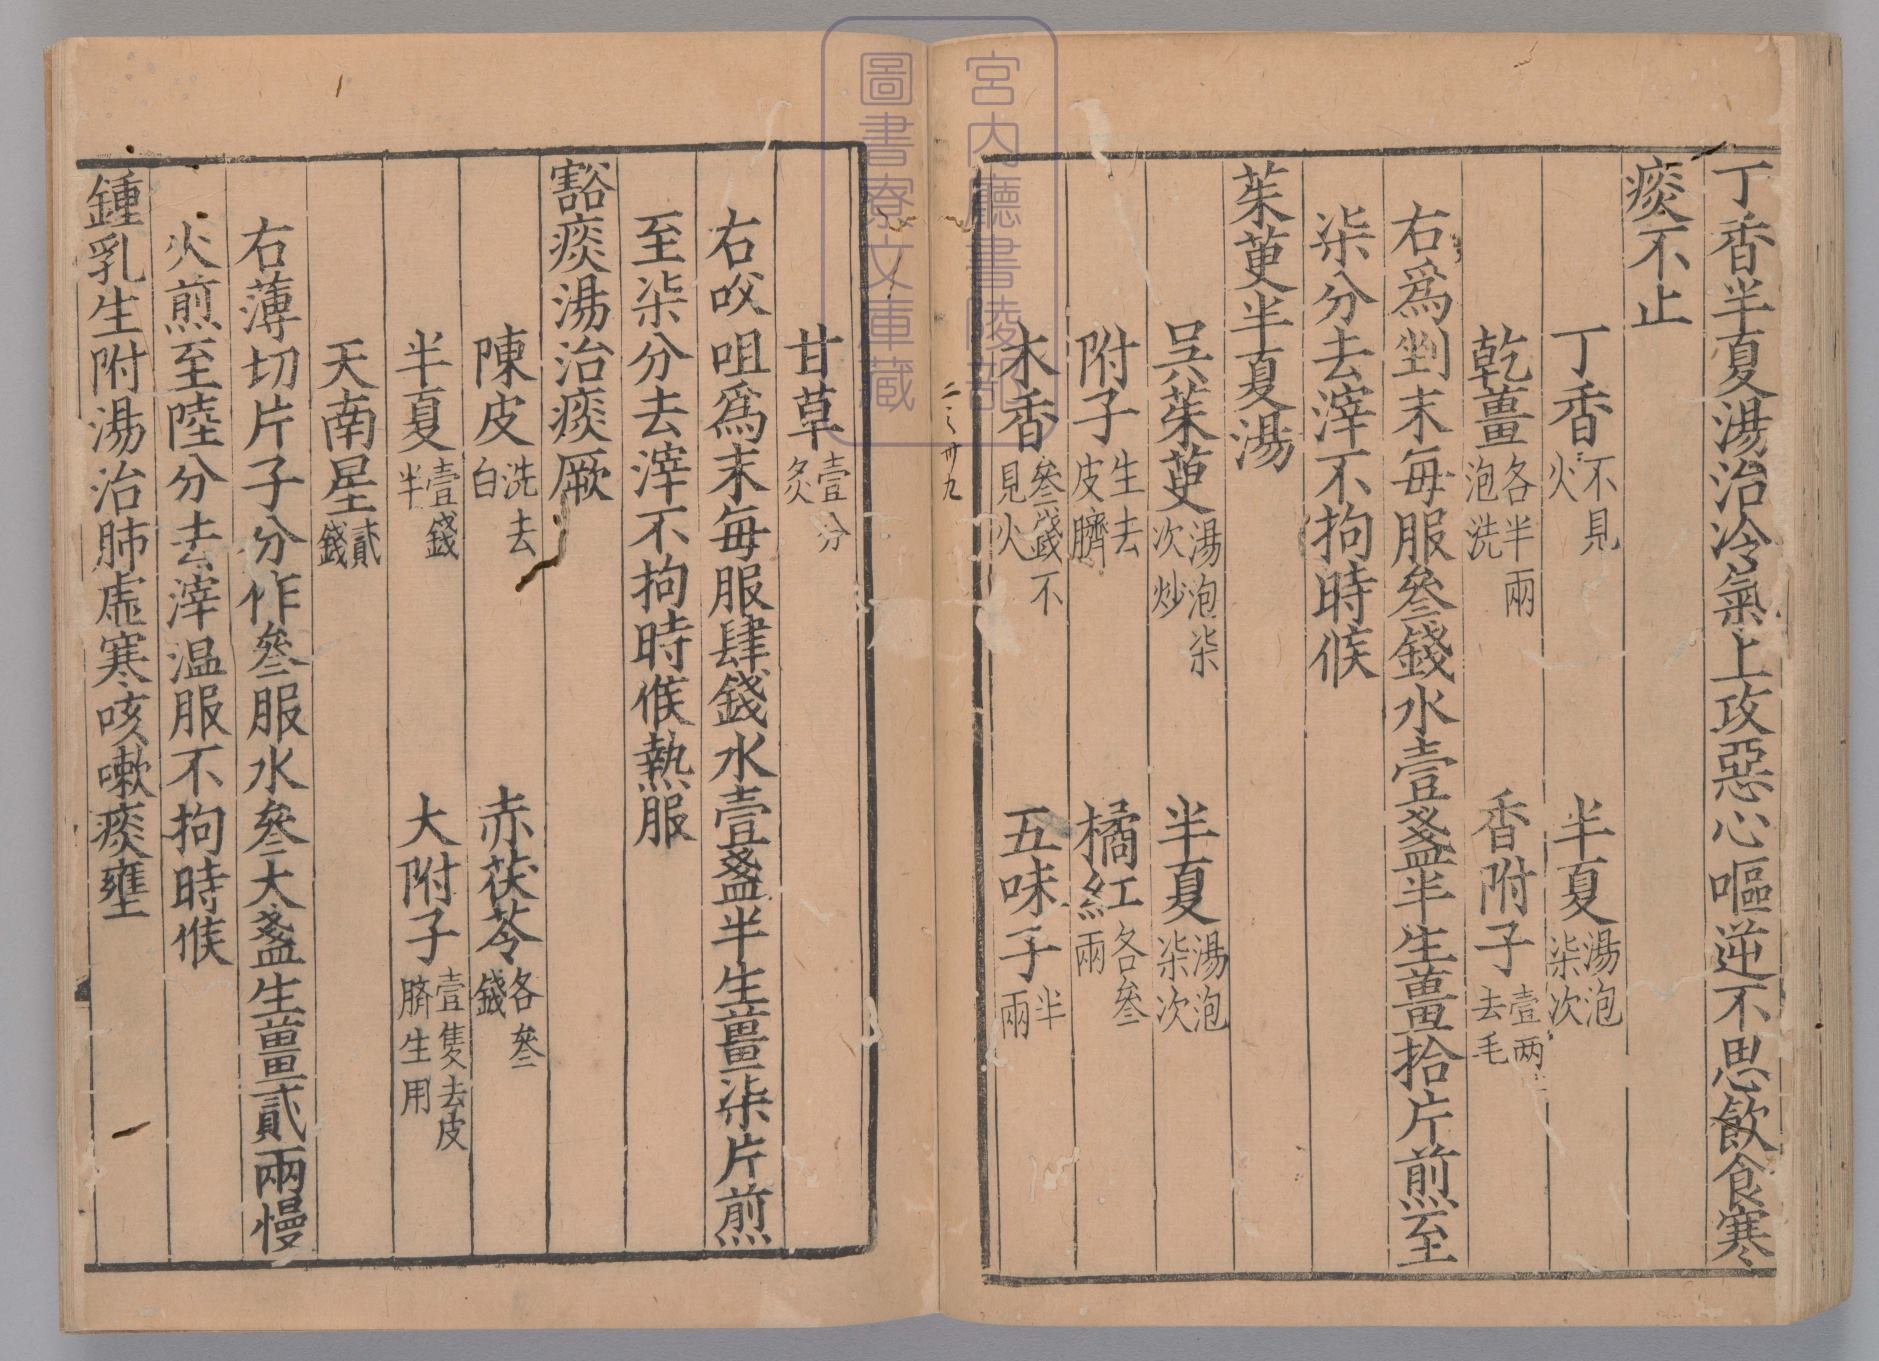 丁香半夏湯治冷氣上攻惡心嘔逆不思飲食寒
痰不止
丁香不見火 半夏湯泡柒次
乾薑各半兩泡洗 香附子壹两去毛
右爲剉末每服叄錢水壹盞半生薑拾片煎至
柒分去滓不拘時候
茱萸半夏湯
吳茱萸湯泡柒次炒 半夏湯泡柒次
附子生去皮臍 橘紅各叄兩
木香叄錢不見火 五味子半兩
甘草壹分炙
右㕮咀爲末每服肆錢水壹盞半生薑柒片煎
至柒分去滓不拘時候熱服
豁痰湯治痰厥
陳皮洗去白 赤茯苓各叄錢
半夏壹錢半 大附子壹隻去皮臍生用
天南星貳錢
右薄切片子分作叄服水叄大盞生薑貳兩慢
火煎至陸分去滓温服不拘時候
鍾乳生附湯治肺虛寒咳嗽痰壅
二之卅九
宮内廳書陵部
圖書寮文庫藏